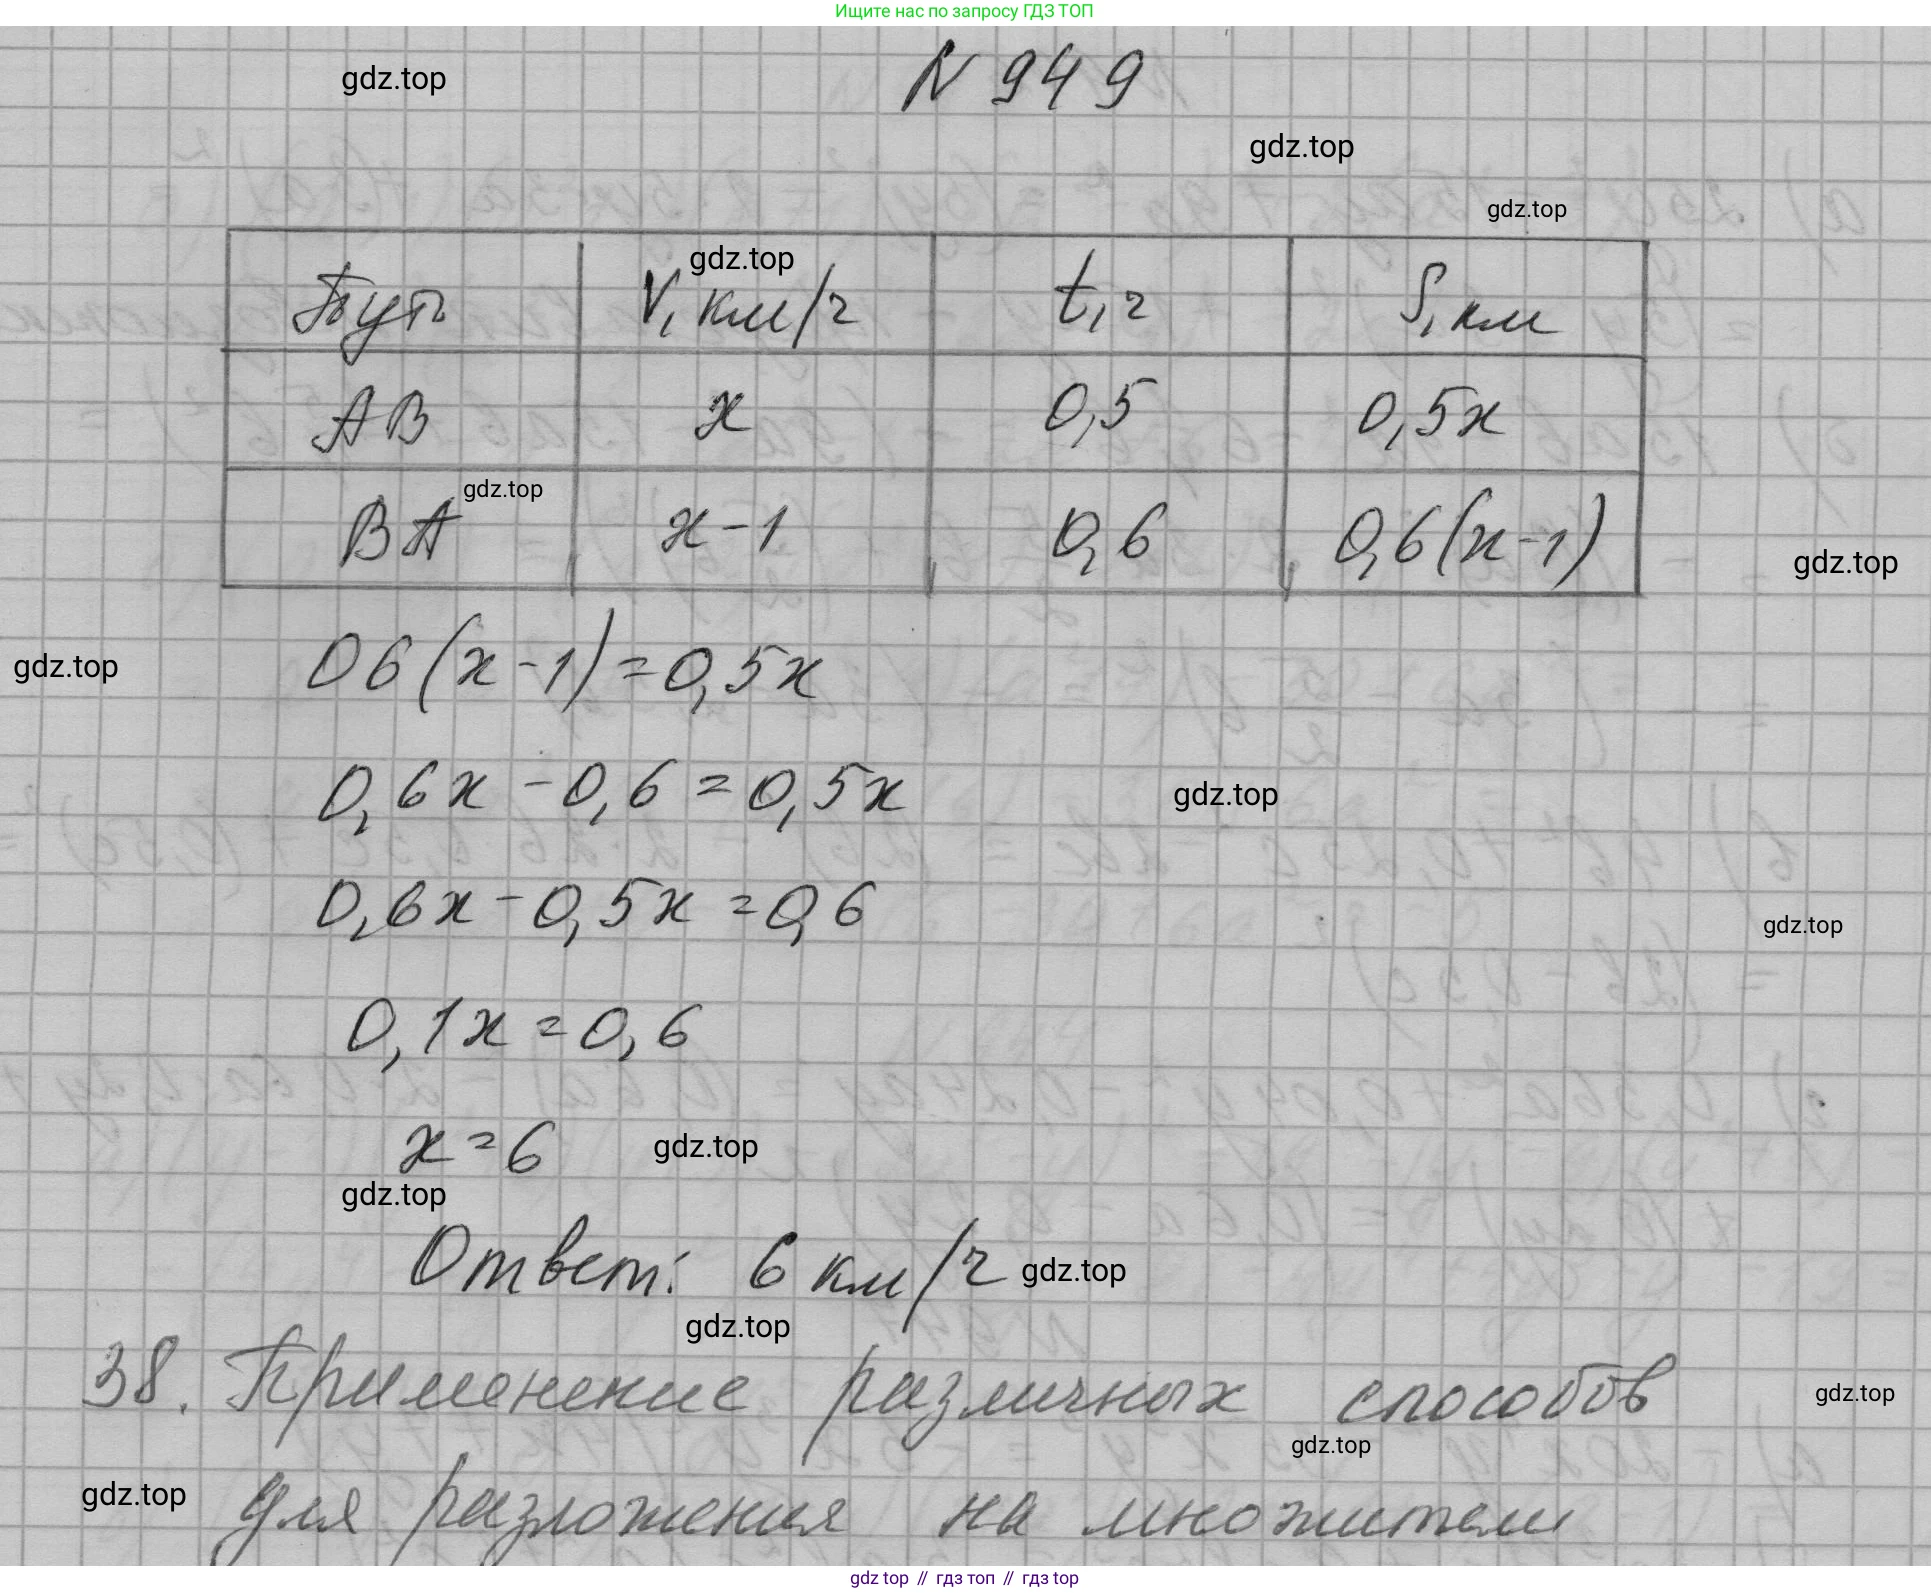 Ищите нас по запросу ГДЗ ТОП
N 949
gdz.top
gdz.top
gdz.top
Путь V, км/ч t, ч S, км
gdz.top
АВ x 0,5 0,5x
gdz.top
ВА x-1 0,6 0,6(x-1)
gdz.top
06(x-1)=0,5x
gdz.top
0,6x-0,6=0,5x
gdz.top
0,6x-0,5x=0,6
gdz.top
0,1x=0,6
x=6
gdz.top
gdz.top
Ответ: 6 км/ч
gdz.top
gdz.top
38. Применение различных способов
gdz.top
gdz.top
для разложения на множители
gdz.top
gdz top // гдз топ // гдз top